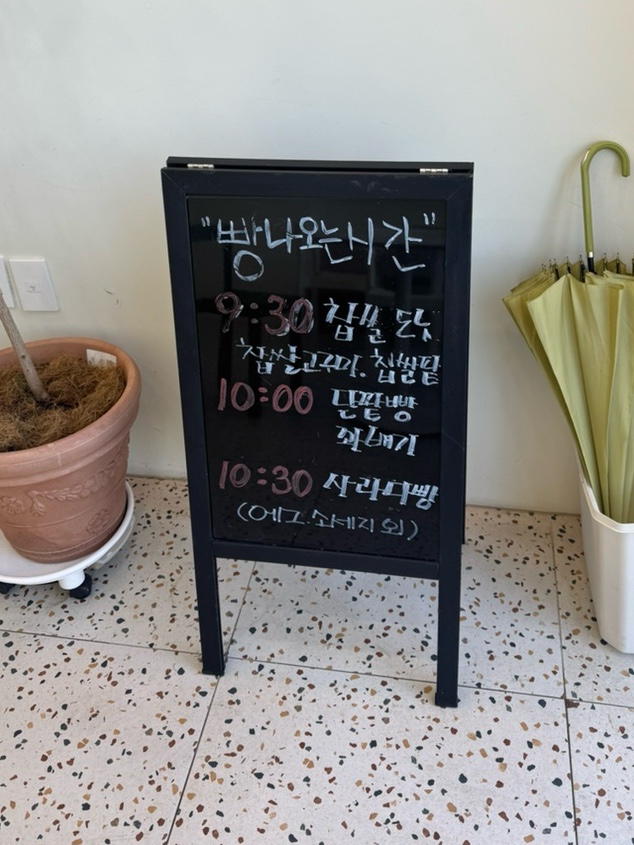 "빵나오는시간"
9:30 찹쌀도넛
찹쌀고구마. 찹쌀팥
10:00 단팥빵
꽈배기
10:30 사라다빵
(에그.소세지 외)